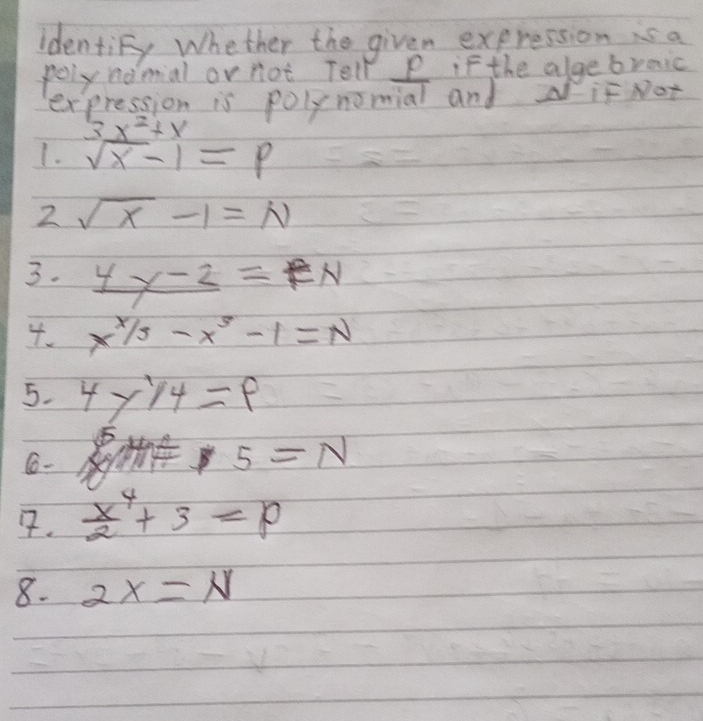 Identify Whether the given expression is a
polynomial or not Tell P if the algebraic
expression is polynomial and N if Not
3x²+x
1. √x-1 = P
2 √x -1 = N
3. 4y-2 = N
y
4. - x⁵ -1 = N
5. 4y¹/4 = P
6- 5 = N
7. x⁴/2 + 3 = P
8. 2x = N